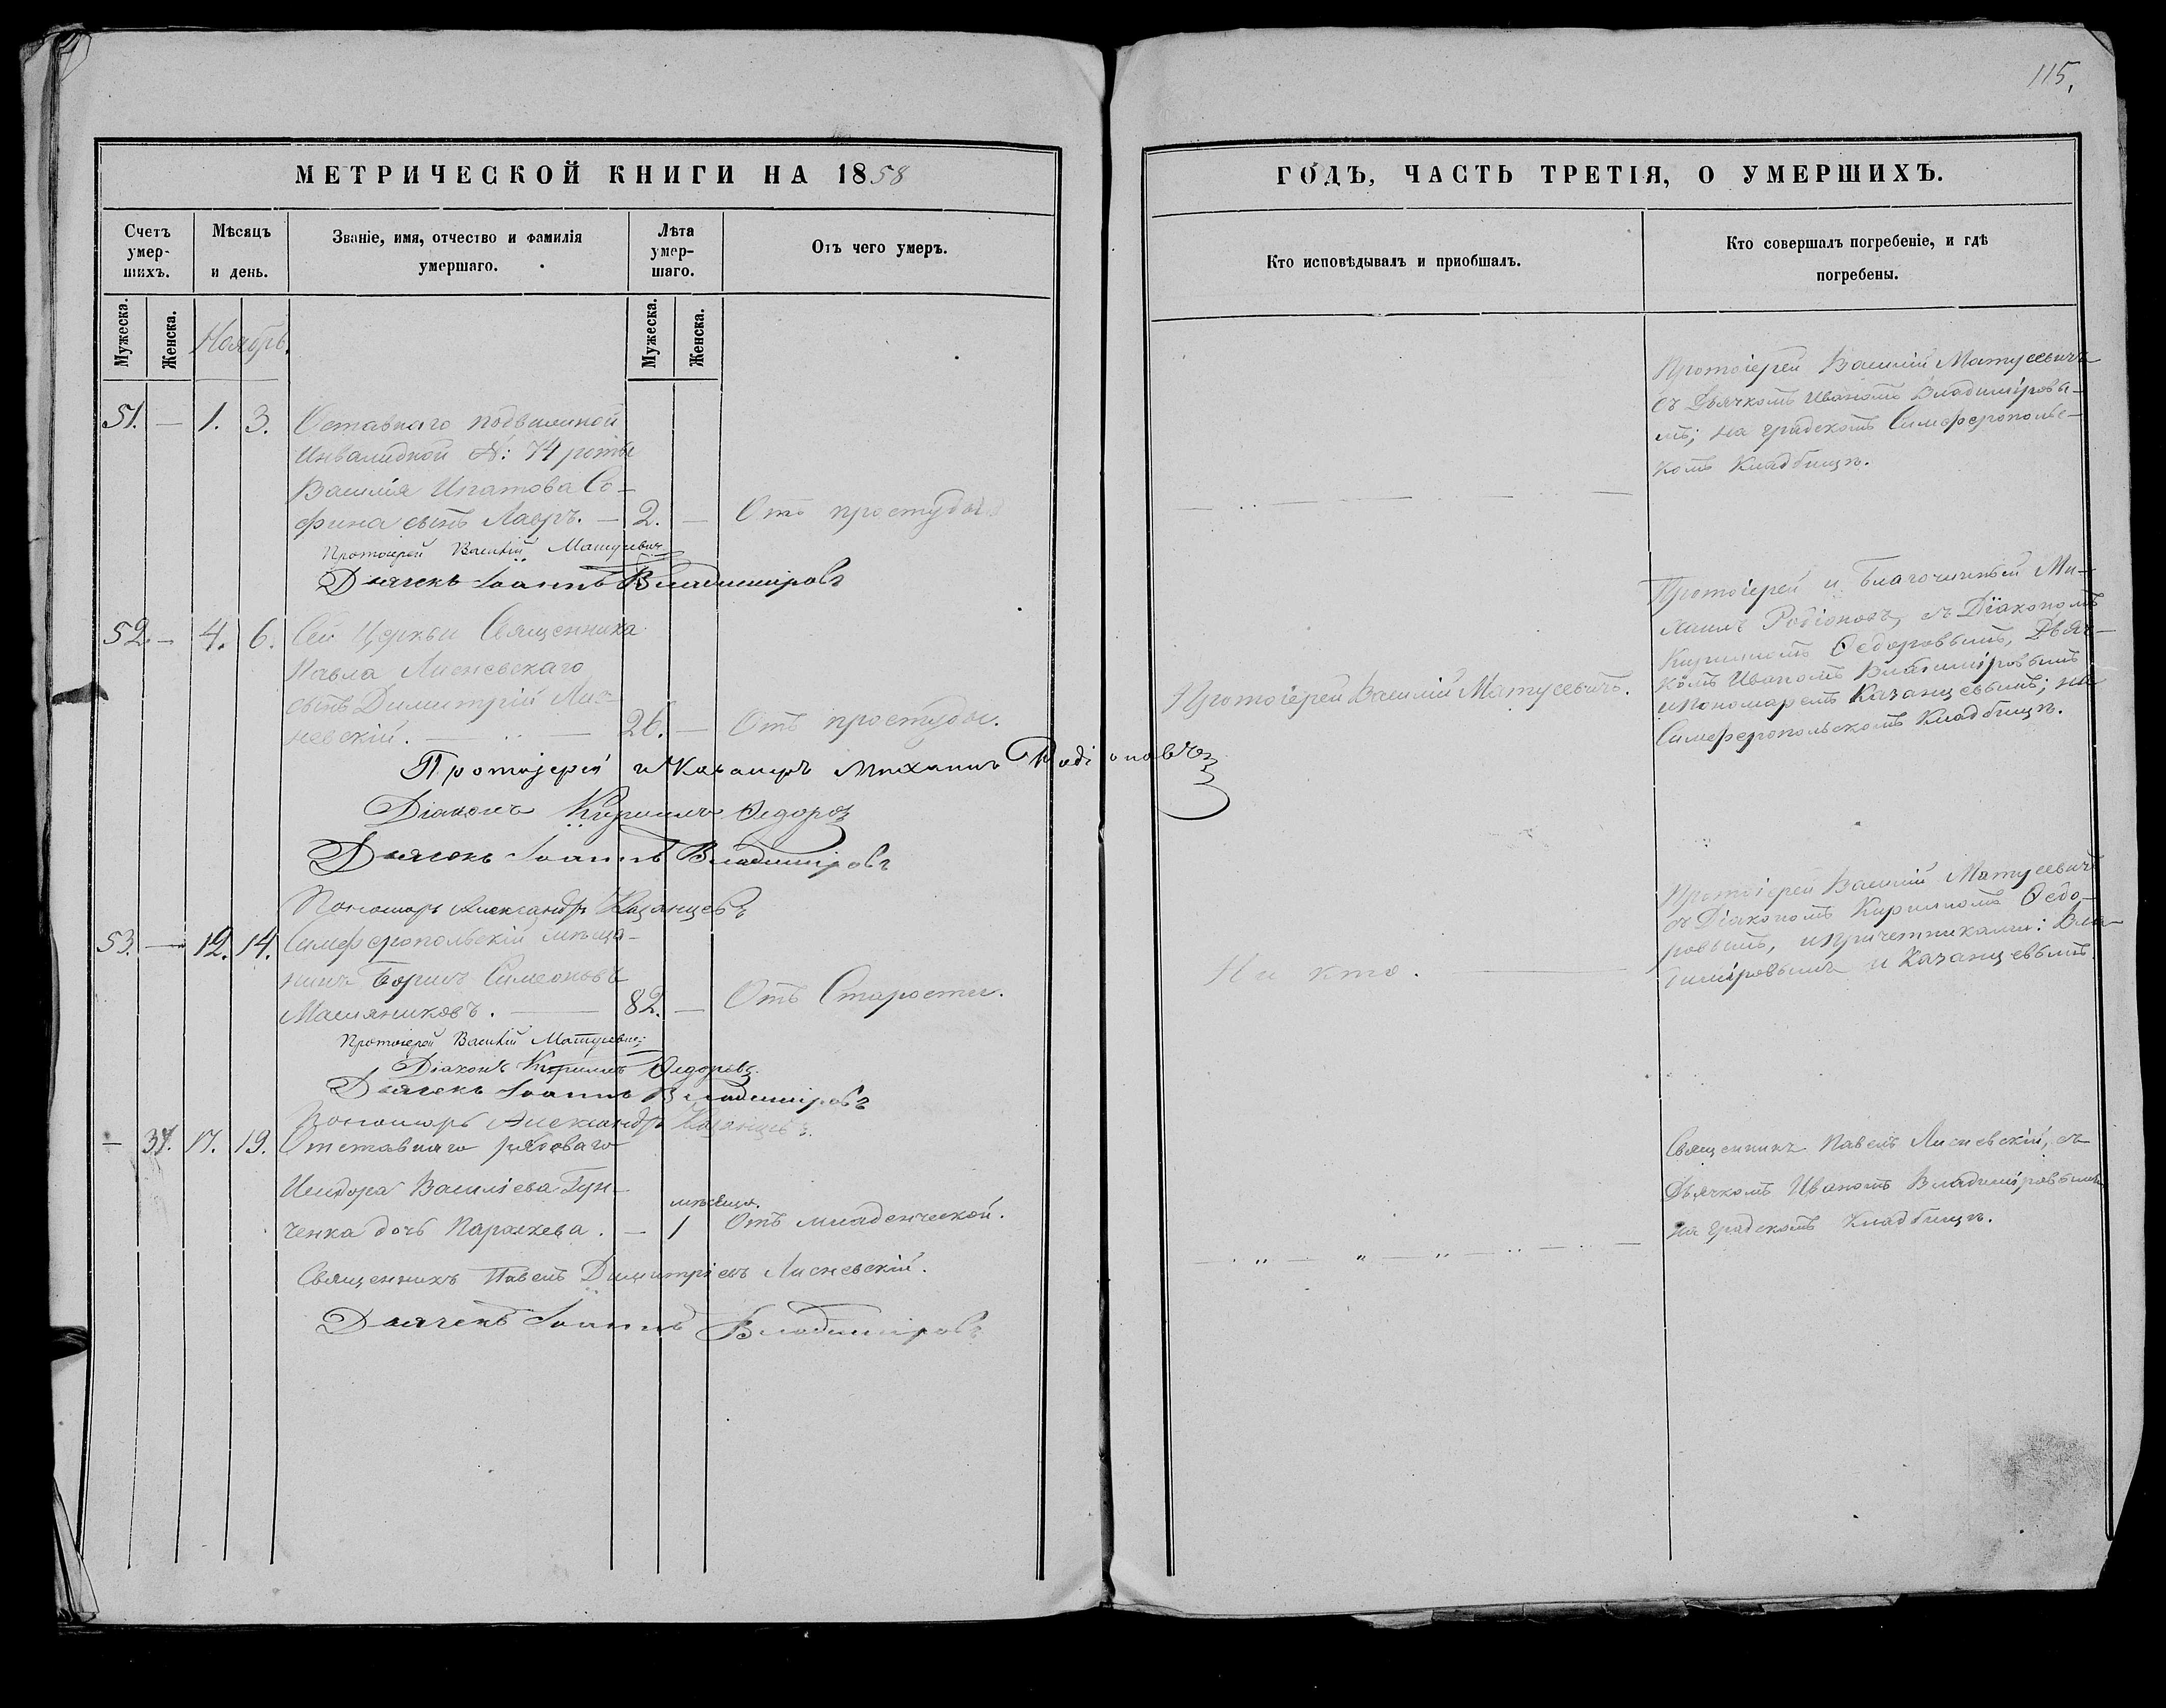 115.
МЕТРИЧЕСКОЙ КНИГИ НА 1858
ГОДЪ, ЧАСТЬ ТРЕТІЯ, О УМЕРШИХЪ.
Счетъ умер-шихъ.
Мѣсяцъ и день.
Званіе, имя, отчество и фамилія умершаго.
Лѣта умер-шаго.
Отъ чего умеръ.
Кто исповѣдывалъ и пріобщалъ.
Кто совершалъ погребеніе, и гдѣ погребены.
Мужеска.
Женска.
Ноябрь.
Мужеска.
Женска.
51. — 1. 3.
Инвалидной №: 74 роты
Василія Игатова Со-
фина сынъ Лавръ. — 2. — Отъ простуды
Протоіерей Василій Матусевичъ
Дьячекъ Іоаннъ Владиміровъ
Протоіерей Василій Матусевичъ
съ Дьячкомъ Иваномъ Владиміровы-
мъ; на градскомъ Симферопольс-
комъ Кладбищѣ.
52. — 4. 6. Сей Церкви Священника
Павла Лисневскаго
сынъ Димитрій Лис-
невскій. — 26. — Отъ простуды.
Протоіерей Василій Матусевичъ.
Протоіерей и Благочинный Ми-
хаилъ Родіоновъ, съ Діакономъ
Кириломъ Ѳедоровымъ, Дьяч-
комъ Иваномъ Владиміровымъ
и пономаремъ Казанцевымъ; на
Симферопольскомъ Кладбищѣ.
Протоіерей и Кавалеръ Михаилъ Родіоновъ
Діаконъ Кириллъ Ѳедоровъ
Дьячекъ Іоаннъ Владиміровъ
Пономарь Александръ Казанцевъ
53. — 12. 14. Симферопольскій мѣща-
нинъ Борисъ Симеоновъ
Масляниковъ. — 82. — Отъ Старости.
Ни кто.
Протоіерей Василій Матусевичъ
съ Діакономъ Кириломъ Ѳедо-
ровымъ, и причетниками: Вла-
диміровымъ и Казанцевымъ
Протоіерей Василій Матусевичъ
Діаконъ Кириллъ Ѳедоровъ
Дьячекъ Іоаннъ Владиміровъ
Пономарь Александръ Казанцевъ.
— 37. 17. 19. Отставнаго рядоваго
Исидора Василіева Гун-
мѣсяца.
ченка дочь Параскева. — 1 Отъ младенческой.
Священникъ Павелъ Лисневскій, съ
Дьячкомъ Иваномъ Владиміровымъ
на градскомъ Кладбищѣ.
Священникъ Павелъ Димитріевъ Лисневскій.
Дьячекъ Іоаннъ Владиміровъ